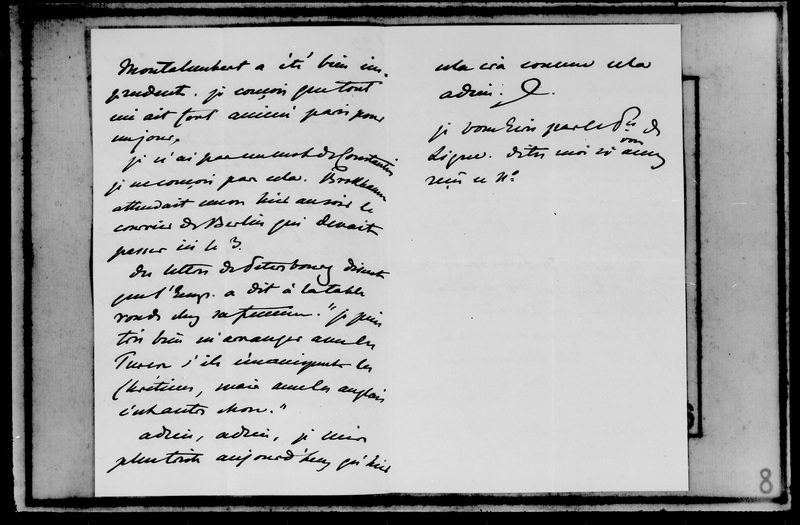 Montalembert a été bien im-
prudent. je conçois que tout
ait fort animé paris pour
un jour.
je n'ai pas un mot de Constantin
je ne conçois pas cela. Brockhausen
attendait encore hier au soir le
courrier de Berlin qui devait
passer ici le 3.
des lettres de Petersbourg disent
que l'Emp. a dit à la table
ronde chez sa femme. "je puis
très bien m'arranger avec les
Turcs s'ils émancipent les
Chrétiens, mais avec les anglais
c'est autre chose."
adieu, adieu, je suis
plus triste aujourd'huy qu'hier
cela ira comme cela
adieu.
je vous écris par le Pce de
Ligne. dites moi si vous avez
reçu ce No
8